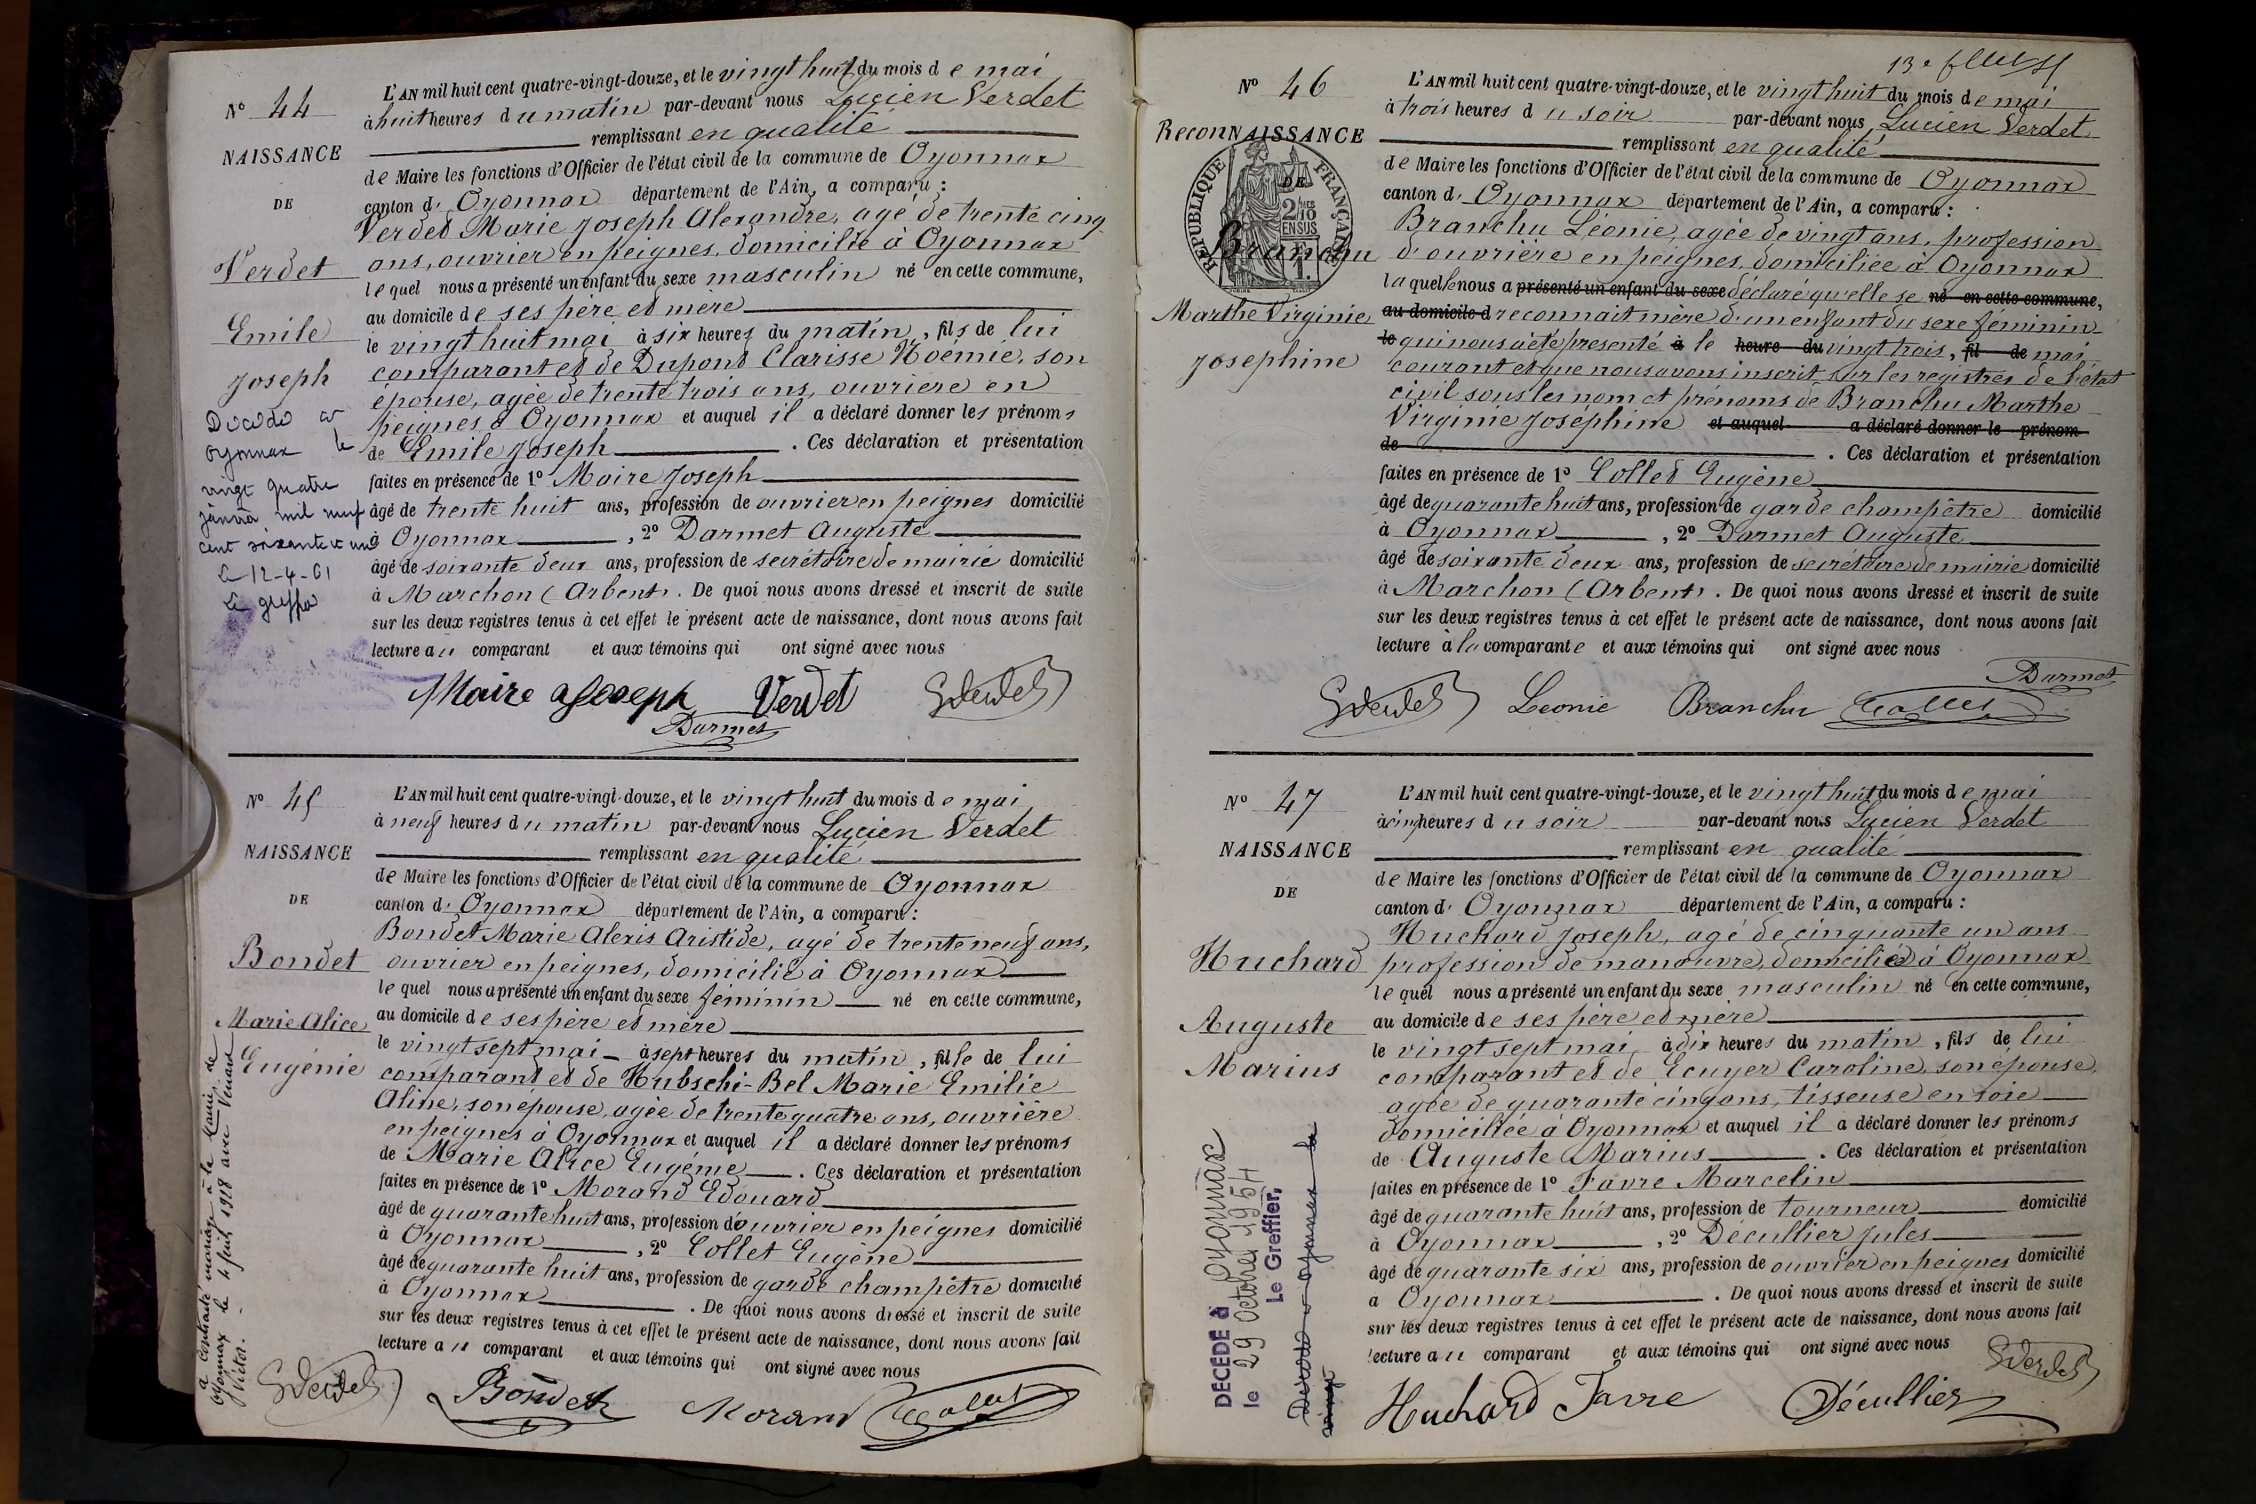 L'AN mil huit cent quatre-vingt-douze, et le vingt huit du mois de mai
N° 44
à huit heures du matin par-devant nous Lucien Verdet
remplissant en qualité
NAISSANCE
de Maire les fonctions d'Officier de l'état civil de la commune de Oyonnax
DE
canton d' Oyonnax département de l'Ain, a comparu :
Verdet Marie Joseph Alexandre, agé de trente cinq
ans, ouvrier en peignes, domicilié à Oyonnax
Verdet
lequel nous a présenté un enfant du sexe masculin né en cette commune,
au domicile de ses père et mère
Emile
le vingt huit mai à six heures du matin, fils de lui
comparant et de Dupont Clarisse Noémie, son
Joseph
épouse, agée de trente trois ans, ouvrière en
peignes à Oyonnax et auquel il a déclaré donner les prénoms
de Emile Joseph . Ces déclaration et présentation
faites en présence de 1° Maire Joseph
âgé de trente huit ans, profession de ouvrier en peignes domicilié
à Oyonnax , 2° Darmet Auguste
âgé de soixante deux ans, profession de secrétaire de mairie domicilié
à Marchon (Arbent) . De quoi nous avons dressé et inscrit de suite
sur les deux registres tenus à cet effet le présent acte de naissance, dont nous avons fait
lecture au comparant et aux témoins qui ont signé avec nous
Décédé à
Oyonnax le
vingt quatre
janvier mil neuf
cent soixante et un
Le 12-4-61
Le greffier
Maire Joseph Verdet
Darmet
N° 45
L'AN mil huit cent quatre-vingt-douze, et le vingt huit du mois de mai
à neuf heures du matin par-devant nous Lucien Verdet
NAISSANCE
remplissant en qualité
de Maire les fonctions d'Officier de l'état civil de la commune de Oyonnax
DE
canton d' Oyonnax département de l'Ain, a comparu :
Bondet Marie Alexis Aristide, agé de trente neuf ans,
Bondet
ouvrier en peignes, domicilié à Oyonnax
lequel nous a présenté un enfant du sexe féminin né en cette commune,
Marie Alice
au domicile de ses père et mère
Eugénie
le vingt sept mai à sept heures du matin, fille de lui
comparant et de Hubschi-Bel Marie Emilie
Aline, son epouse, agée de trente quatre ans, ouvrière
en peignes à Oyonnax et auquel il a déclaré donner les prénoms
de Marie Alice Eugénie . Ces déclaration et présentation
faites en présence de 1° Morand Edouard
âgé de quarante huit ans, profession d'ouvrier en peignes domicilié
à Oyonnax , 2° Collet Eugène
âgé de quarante huit ans, profession de garde champêtre domicilié
à Oyonnax . De quoi nous avons dressé et inscrit de suite
sur les deux registres tenus à cet effet le présent acte de naissance, dont nous avons fait
lecture au comparant et aux témoins qui ont signé avec nous
a contracté mariage à la Mairie de
Oyonnax le 4 juil 1928 avec
Victor.
Bondet Morand Collet
13e
N° 46
L'AN mil huit cent quatre-vingt-douze, et le vingt huit du mois de mai
à trois heures du soir par-devant nous Lucien Verdet
ReconNAISSANCE
remplissant en qualité
de Maire les fonctions d'Officier de l'état civil de la commune de Oyonnax
DE
RÉPUBLIQUE FRANÇAISE
2/10 MES
EN SUS
canton d' Oyonnax département de l'Ain, a comparu :
Branchu Léonie, agée de vingt ans, profession
Branchu
d'ouvrière en peignes, domiciliée à Oyonnax
laquelle nous a présenté un enfant du sexe déclaré qu'elle se né en cette commune,
Marthe Virginie
au domicile d reconnait mère d'un enfant du sexe féminin
Josephine
le qui nous a été presenté à le heure du vingt trois, fil de mai
courant et que nous avons inscrit sur les registres de l'état
civil sous les nom et prénoms de Branchu Marthe
Virginie Joséphine et auquel a déclaré donner le prénom
de . Ces déclaration et présentation
faites en présence de 1° Collet Eugène
âgé de quarante huit ans, profession de garde champêtre domicilié
à Oyonnax , 2° Darmet Auguste
âgé de soixante deux ans, profession de secrétaire de mairie domicilié
à Marchon (Arbent) . De quoi nous avons dressé et inscrit de suite
sur les deux registres tenus à cet effet le présent acte de naissance, dont nous avons fait
lecture à la comparante et aux témoins qui ont signé avec nous
Darmet
Leonie Branchu Collet
N° 47
L'AN mil huit cent quatre-vingt-douze, et le vingt huit du mois de mai
à cinq heures du soir par-devant nous Lucien Verdet
NAISSANCE
remplissant en qualité
de Maire les fonctions d'Officier de l'état civil de la commune de Oyonnax
DE
canton d' Oyonnax département de l'Ain, a comparu :
Huchard Joseph, agé de cinquante un ans
Huchard
profession de manœuvre, domicilié à Oyonnax
lequel nous a présenté un enfant du sexe masculin né en cette commune,
Auguste
au domicile de ses père et mère
Marius
le vingt sept mai à dix heures du matin, fils de lui
comparant et de Ecuyer Caroline, son épouse,
agée de quarante cinq ans, tisseuse en soie
domiciliée à Oyonnax et auquel il a déclaré donner les prénoms
de Auguste Marius . Ces déclaration et présentation
faites en présence de 1° Favre Marcelin
âgé de quarante huit ans, profession de tourneur domicilié
à Oyonnax , 2° Décullier Jules
âgé de quarante six ans, profession de ouvrier en peignes domicilié
a Oyonnax . De quoi nous avons dressé et inscrit de suite
sur les deux registres tenus à cet effet le présent acte de naissance, dont nous avons fait
lecture au comparant et aux témoins qui ont signé avec nous
DÉCÉDÉ à OYONNAX
le 29 octobre 1954
Le Greffier,
Décédé à Oyonnax le
vingt
Huchard Favre Décullier